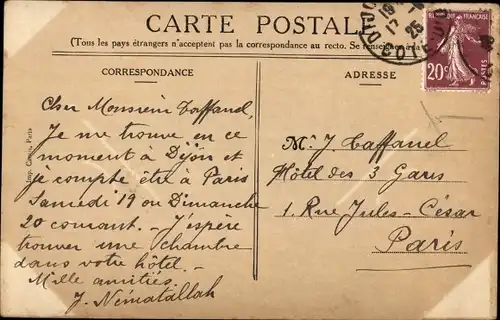 CARTE POSTALE
(Tous les pays étrangers n'acceptent pas la correspondance au recto. Se renseigner à la
CORRESPONDANCE
ADRESSE
20c
POSTES
DIJON
COTE D'OR
25
Cher Monsieur Taffanel,
Je me trouve en ce
moment à Dijon et
je compte être à Paris
Samedi 19 ou Dimanche
20 courant. - J'espère
trouver une chambre
dans votre hôtel. -
Mille amitiés.
J. Nématallah
Mr J. Taffanel
Hôtel des 3 Gares
1. Rue Jules-César
Paris
Paris